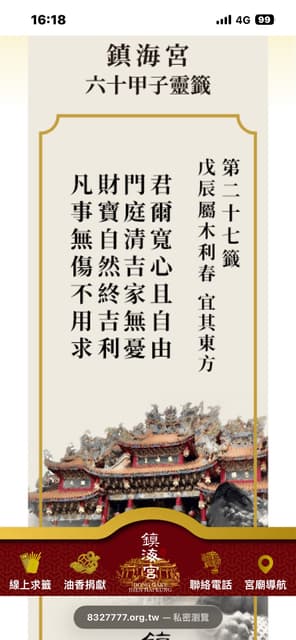 16:18
4G 99
鎮海宮
六十甲子靈籤
第二十七籤
戊辰屬木利春 宜其東方
君爾寬心且自由
門庭清吉家無憂
財寶自然終吉利
凡事無傷不用求
鎮海宮
線上求籤
油香捐獻
聯絡電話
宮廟導航
8327777.org.tw — 私密瀏覽